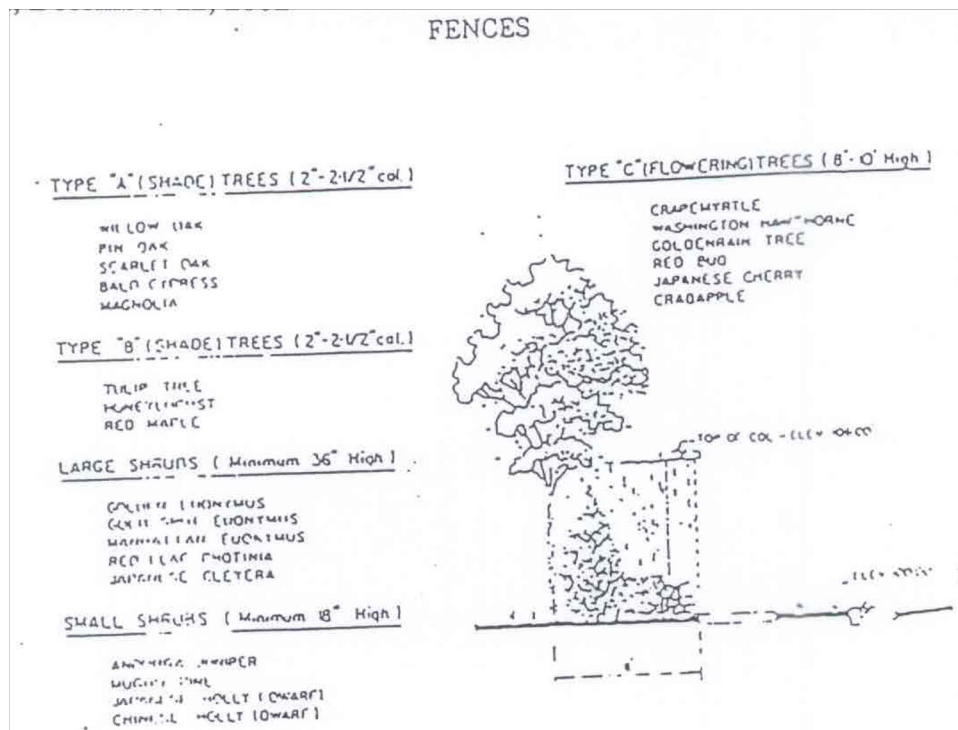 FENCES
TYPE "A" (SHADE) TREES (2"-2-1/2" cal.)
WILLOW OAK
PIN OAK
SCARLET OAK
BALD CYPRESS
MAGNOLIA
TYPE "B" (SHADE) TREES (2"-2-1/2" cal.)
TULIP TREE
HONEYLOCUST
RED MAPLE
LARGE SHRUBS ( Minimum 36" High )
GOLDEN EUONYMUS
EUONYMUS
MANHATTAN EUONYMUS
RED LEAF PHOTINIA
JAPANESE CLEYERA
SMALL SHRUBS ( Minimum 18" High )
ANDORRA JUNIPER
MUGHO PINE
JAPANESE HOLLY (DWARF)
CHINESE HOLLY (DWARF)
TYPE "C" (FLOWERING) TREES ( 8'-10' High )
CRAPEMYRTLE
WASHINGTON HAWTHORNE
GOLDENRAIN TREE
RED BUD
JAPANESE CHERRY
CRABAPPLE
TOP OF COL - ELEV